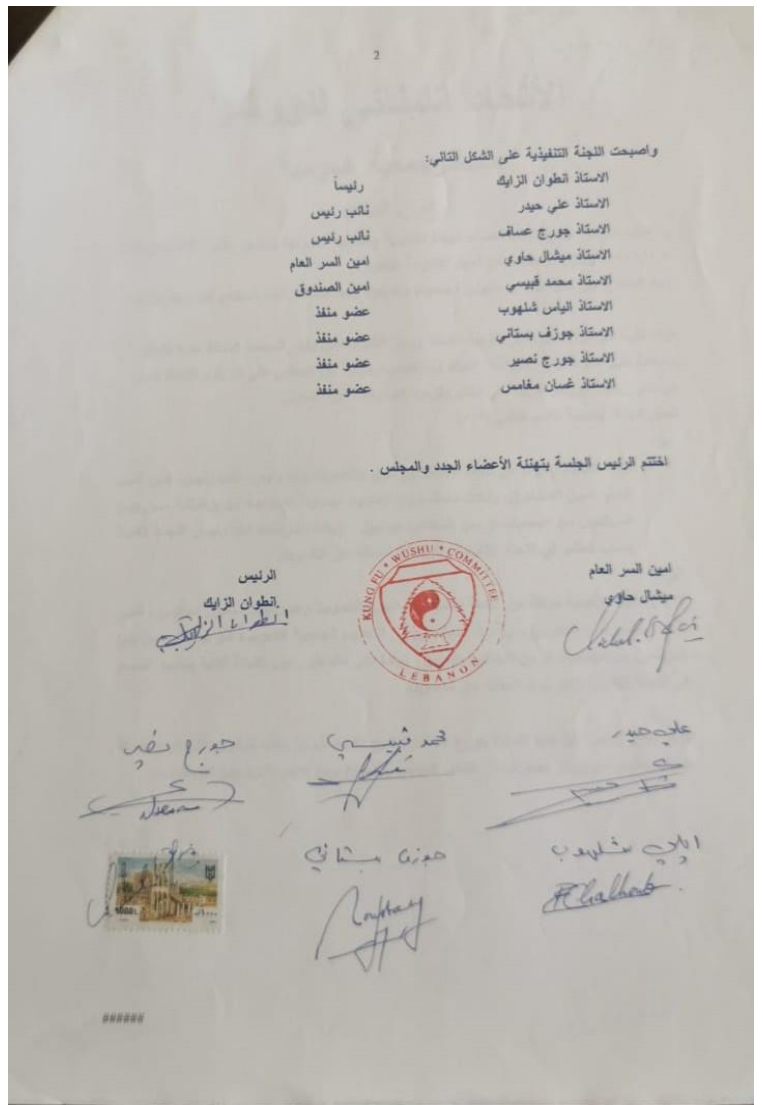 2
واصبحت اللجنة التنفيذية على الشكل التالي:
الاستاذ انطوان الزايك رئيساً
الاستاذ علي حيدر نائب رئيس
الاستاذ جورج عساف نائب رئيس
الاستاذ ميشال حاوي امين السر العام
الاستاذ محمد قبيسي امين الصندوق
الاستاذ الياس شلهوب عضو منفذ
الاستاذ جوزف بستاني عضو منفذ
الاستاذ جورج نصير عضو منفذ
الاستاذ غسان مغامس عضو منفذ
اختتم الرئيس الجلسة بتهنئة الأعضاء الجدد والمجلس .
امين السر العام الرئيس
ميشال حاوي انطوان الزايك
انطوان الزايك
KUNG FU * WUSHU * COMMITTEE
LEBANON
علي حيدر محمد قبيسي جورج نصير
شلهوب جوزف بستاني
######